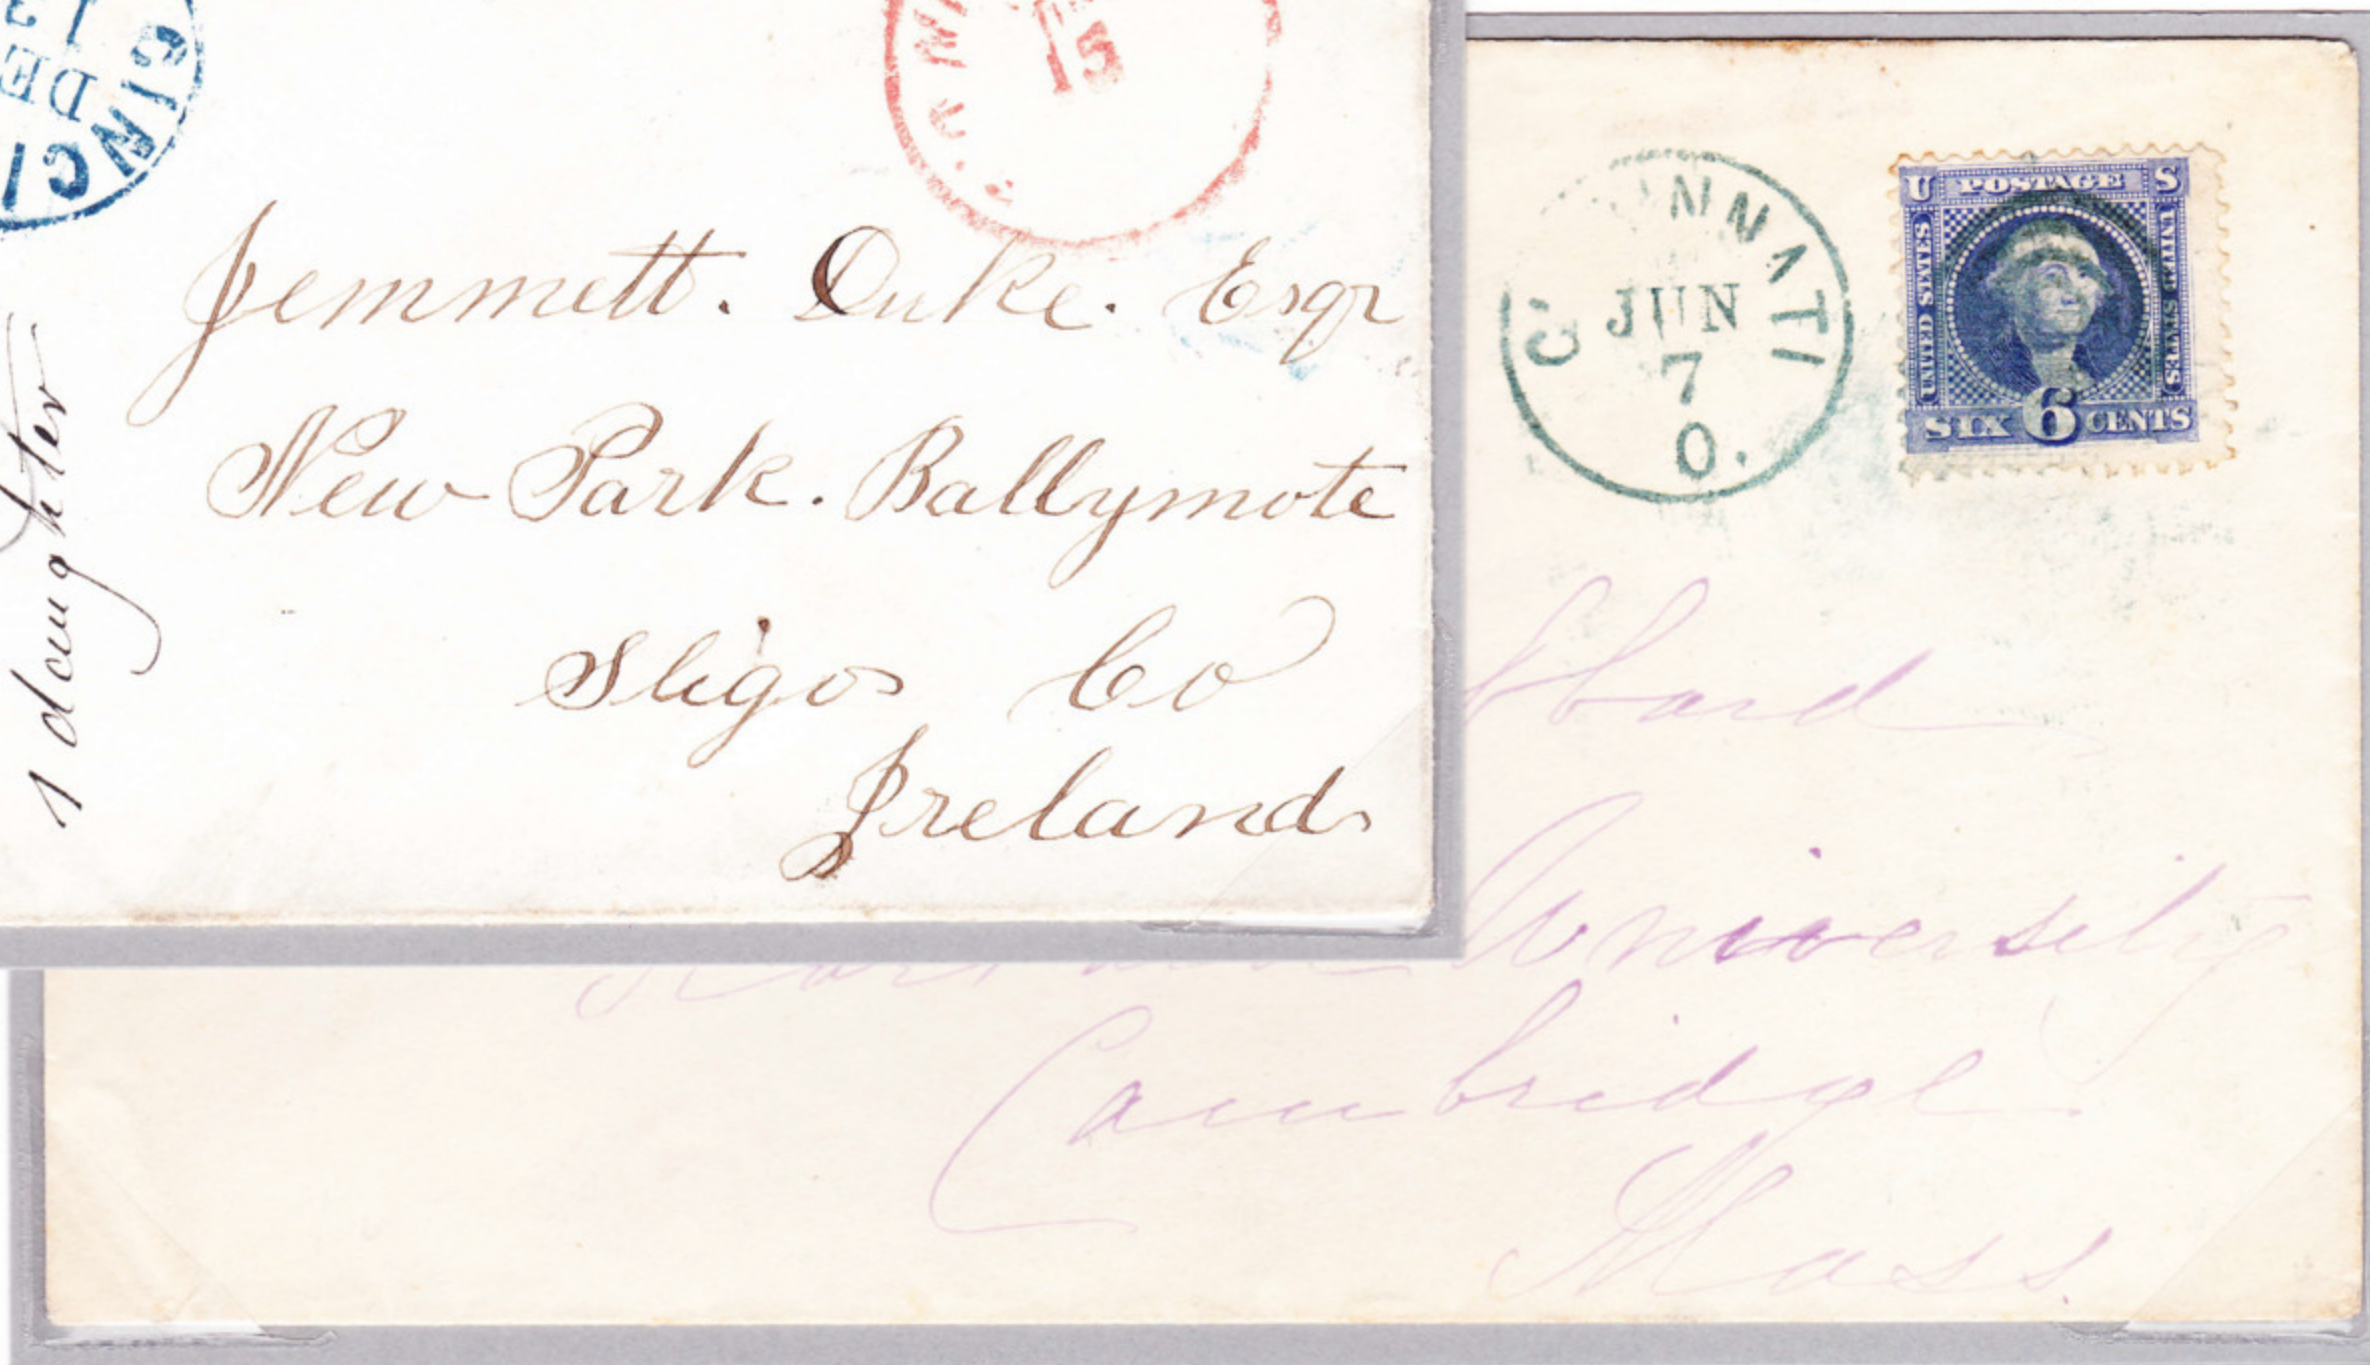 CINCI
DE
13
15
Jemmett. Duke. Esqr
New Park. Ballymote
Sligo Co
Ireland
1 daughter
C NNATI
JUN
7
O.
U POSTAGE S
UNITED STATES
UNITED STATES
SIX 6 CENTS
University
Cambridge
Mass.